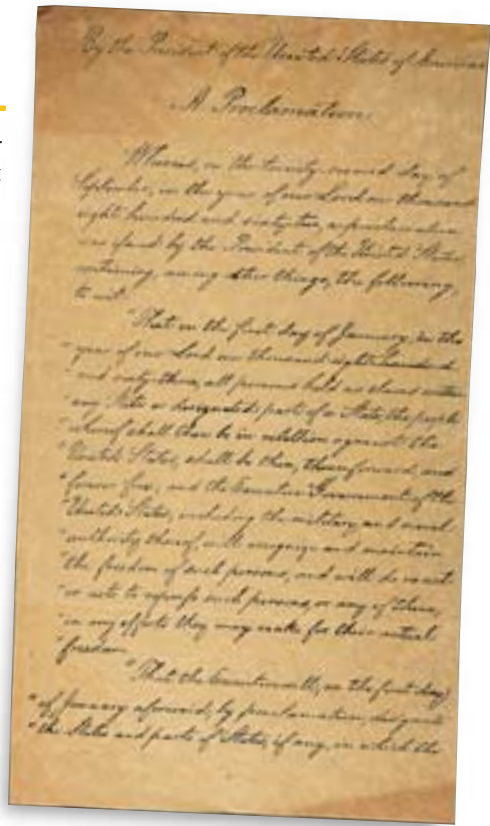 By the President of the United States of America
A Proclamation.
Whereas, on the twenty-second day of
September, in the year of our Lord one thousand
eight hundred and sixty two, a proclamation
was issued by the President of the United States,
containing, among other things, the following,
to wit:
"That on the first day of January, in the
"year of our Lord one thousand eight hundred
"and sixty-three, all persons held as slaves within
"any State or designated part of a State, the people
"whereof shall then be in rebellion against the
"United States, shall be then, thenceforward, and
"forever free; and the Executive Government of the
"United States, including the military and naval
"authority thereof, will recognize and maintain
"the freedom of such persons, and will do no act
"or acts to repress such persons, or any of them,
"in any efforts they may make for their actual
"freedom.
"That the Executive will, on the first day
"of January aforesaid, by proclamation, designate
"the States and parts of States, if any, in which the